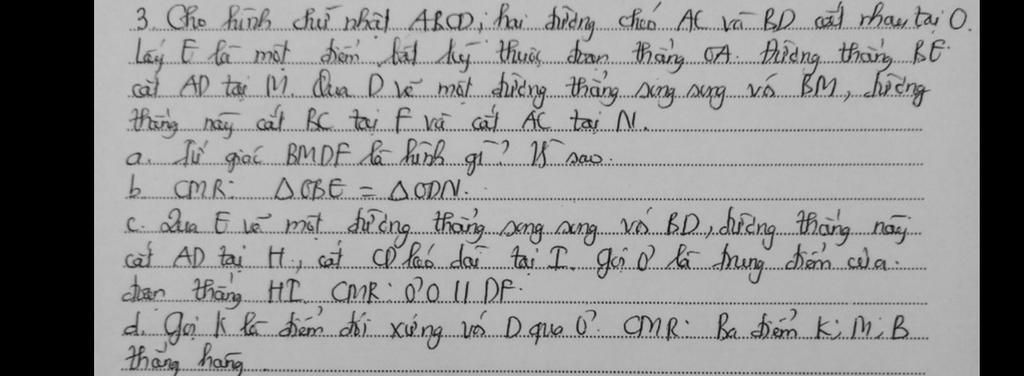 3. Cho hình chữ nhật ABCD, hai đường chéo AC và BD cắt nhau tại O.
Lấy E là một điểm bất kỳ thuộc đoạn thẳng OA. Đường thẳng BE
cắt AD tại M. Qua D vẽ một đường thẳng song song với BM, đường
thẳng này cắt BC tại F và cắt AC tại N.
a. Tứ giác BMDF là hình gì? Vì sao.
b. CMR: ΔOBE = ΔODN.
c. Qua E vẽ một đường thẳng song song với BD, đường thẳng này
cắt AD tại H, cắt CD kéo dài tại I. Gọi O' là trung điểm của
đoạn thẳng HI. CMR: O'O // DF.
d. Gọi K là điểm đối xứng với D qua O'. CMR: Ba điểm K; M; B
thẳng hàng.